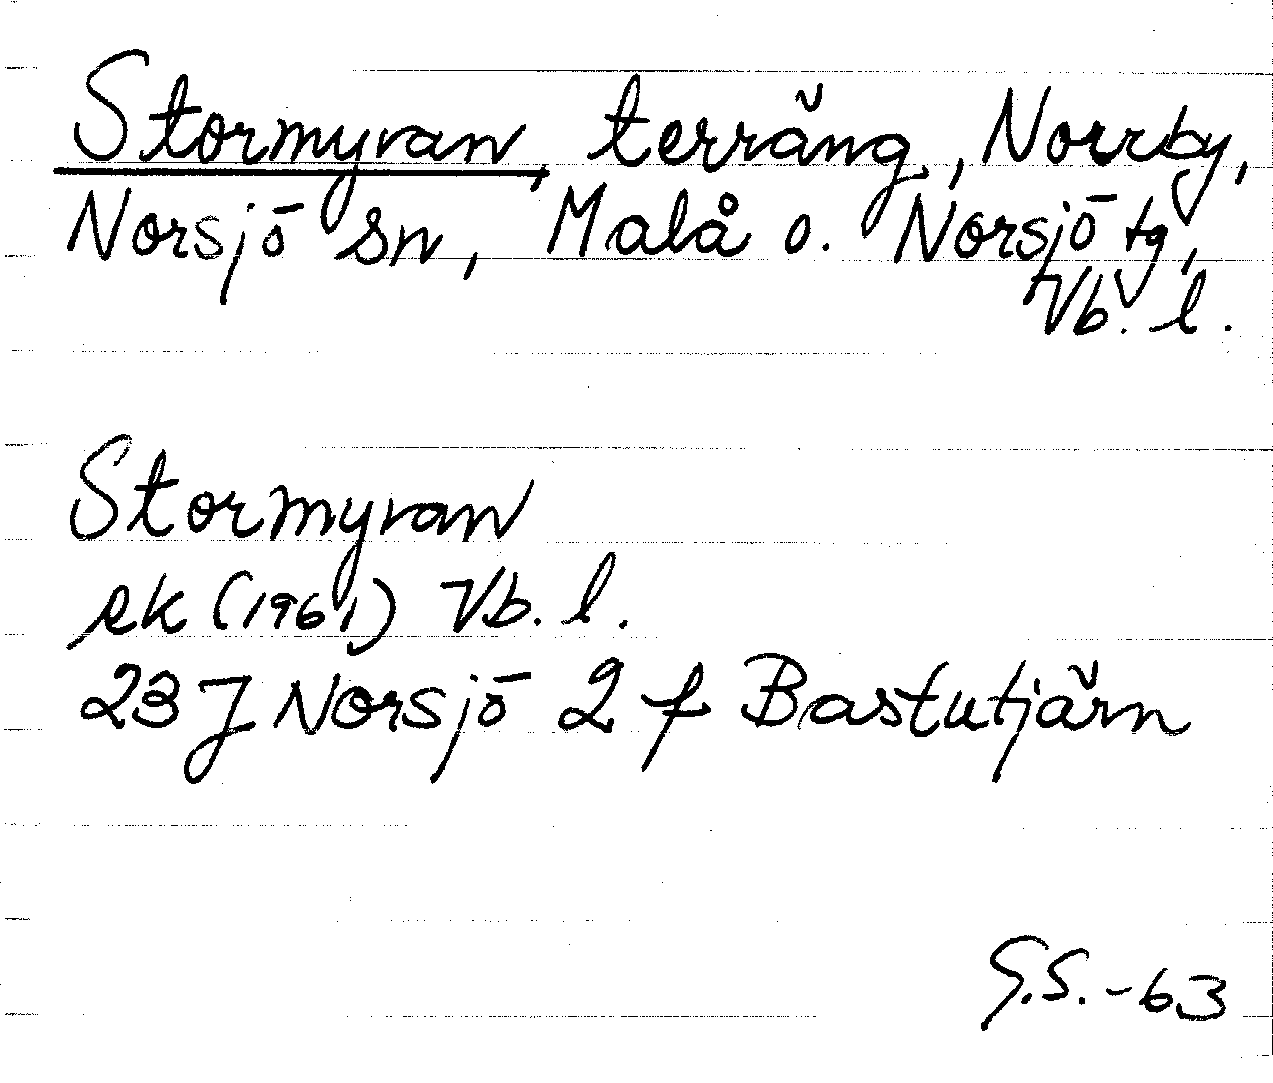 Stormyran, terräng, Norrby,
Norsjö sn, Malå o. Norsjö tg,
Vb. l.
Stormyran
ek (1961) Vb. l.
23 J Norsjö 2 f Bastutjärn
G.S.-63